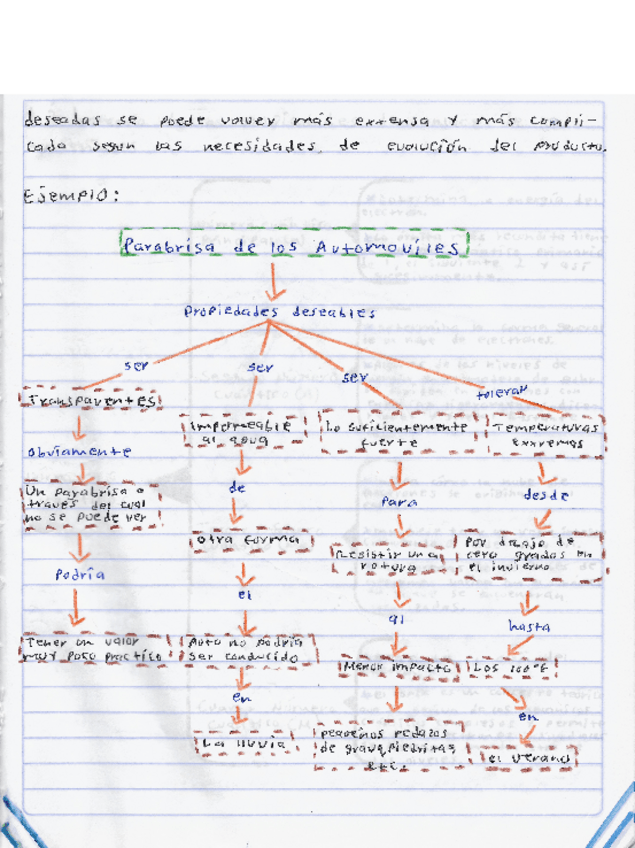 deseadas se puede volver más extensa y más compli-
cada segun las necesidades de evolución del producto.
Ejemplo:
Parabrisa de los Automoviles
Propiedades deseables
ser
ser
ser
tolerar
Transparentes
impermeable
al agua
Lo suficientemente
fuerte
Temperaturas
Extremas
obviamente
de
para
desde
Un parabrisa a
traves del cual
no se puede ver
otra forma
Resistir una
rotura
Por debajo de
cero grados en
el invierno
Podría
el
al
hasta
Tener un valor
muy poco practico
Auto no podria
ser conducido
Menor impacto
Los 100°F
en
en
La lluvia
pequeños pedazos
de grava, piedritas,
etc.
el verano